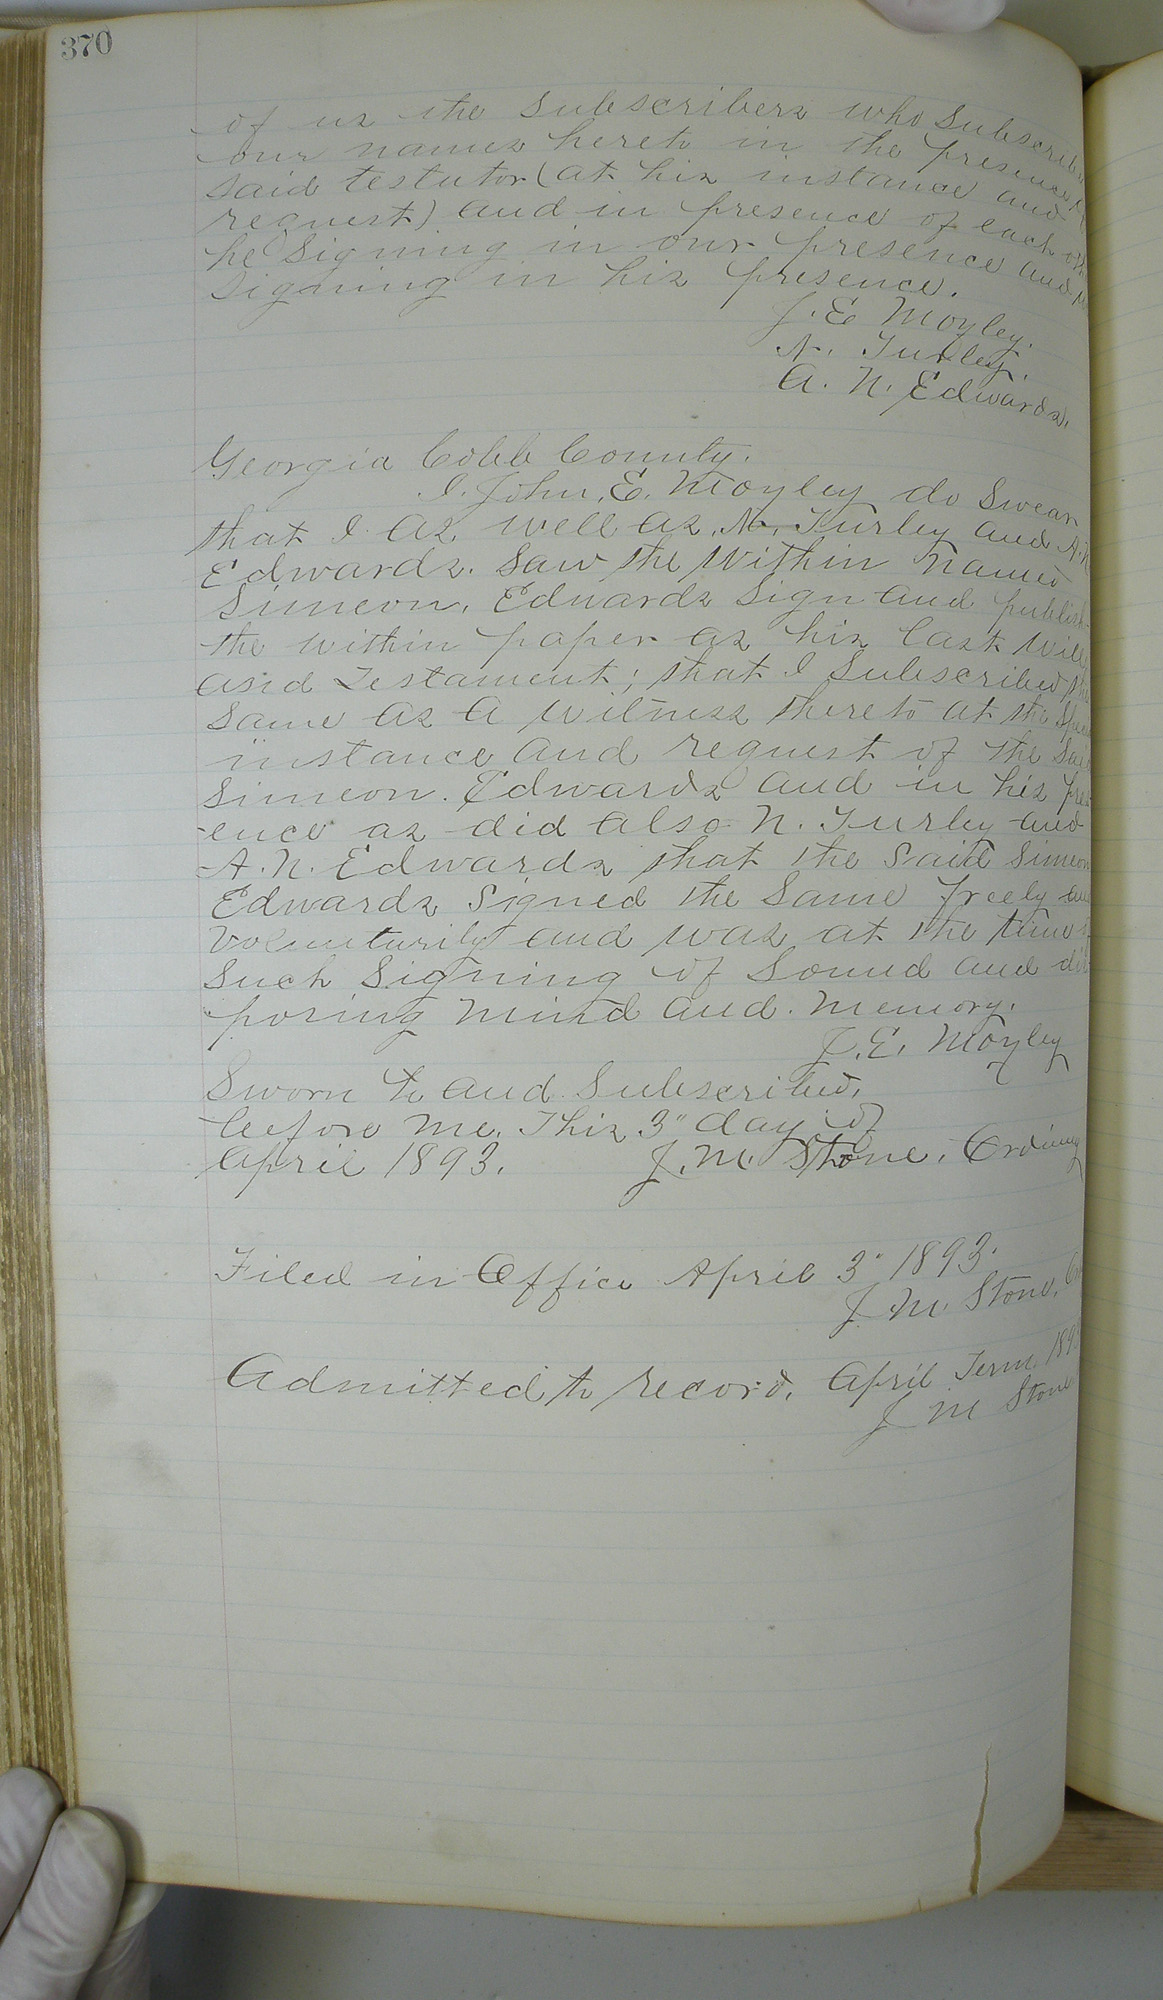 370
of us the Subscribers who Subscribe
our names hereto in the presence
said testutor (at his instance and
request) and in presence of each
he Signing in our presence and
Signing in his presence.
J. E Moyley.
N. Turley.
A. N. Edwards.
Georgia Cobb County.
I. John. E. Moyley do Swear
that I as well as N. Turley and A. N
Edwards. Saw the Within Named
Simeon. Edwards Sign and publish
the within paper as his last Will
and Testament; that I Subscribed the
Same as a Witness thereto at the
instance and request of the Said
Simeon. Edwards and in his pres
ence as did also N. Turley and
A. N. Edwards that the Said Simeon
Edwards Signed the Same freely and
Voluntarily and was at the time
Such Signing of Sound and dis
posing Mind and. Memory.
J. E. Moyley
Sworn to and Subscribed.
before Me. This 3" day of
April 1893. J. M. Stone. Ordinary
Filed in Office April 3" 1893.
J. M. Stone. Or
Admitted to record. April Term. 189
J M Stone